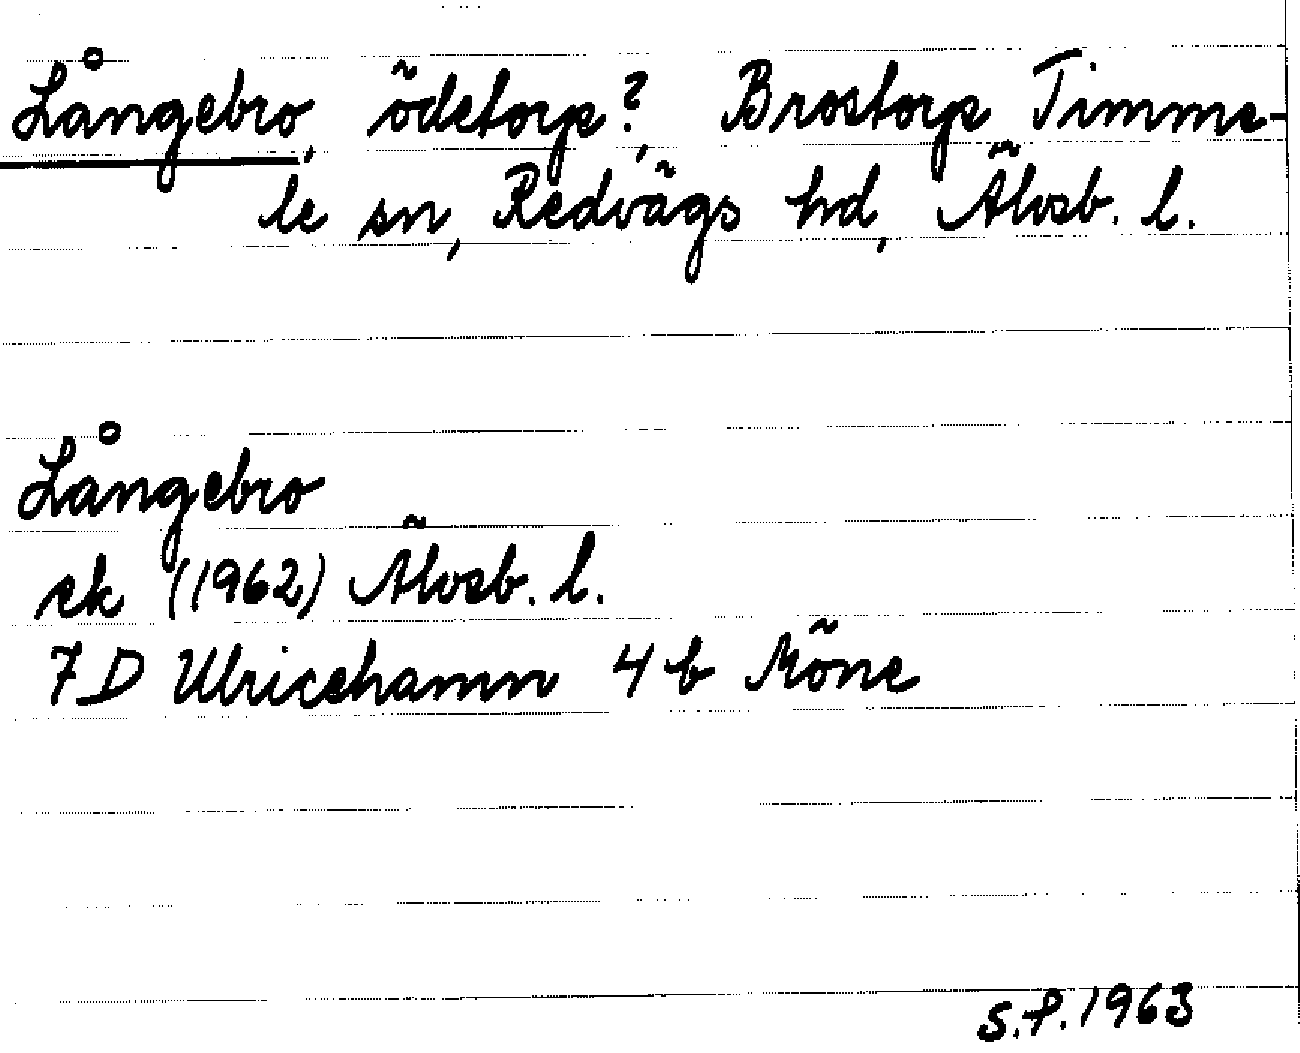 Långebro, ödetorp?, Brostorp Timme-
le sn, Redvägs hd, Älvsb. l.
Långebro
ek (1962) Älvsb. l.
7D Ulricehamn 4 b Möne
S.P. 1963